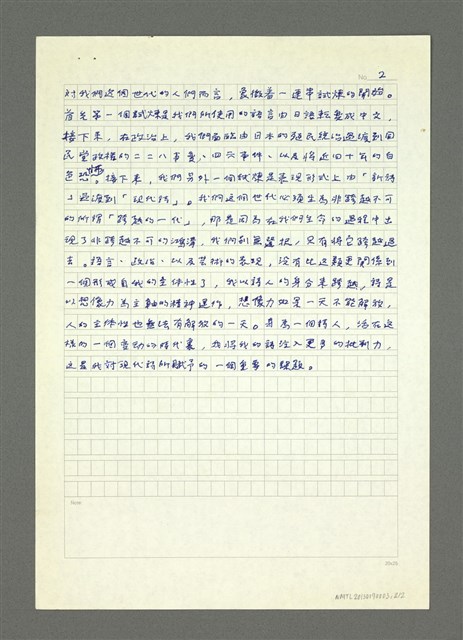 No. 2
對我們這個世代的人們而言,象徵著一連串試煉的開始。
首先第一個試煉是我們所使用的語言由日語轉變成中文,
接下來,在政治上,我們面臨由日本的殖民統治過渡到國
民黨政權的二二八事變、四六事件、以及將近四十年的白
色恐怖。接下來,我們另外一個試煉是表現形式上由「新詩
」過渡到「現代詩」。我們這個世代必須成為非跨越不可
的所謂「跨越的一代」,那是因為在我們生命的過程中出
現了非跨越不可的鴻溝,我們別無選擇,只有將它跨越過
去。語言、政治、以及藝術的表現,沒有比這類更關係到
一個形成自我的主体性了,我以詩人的身分來跨越,詩是
以想像力為主軸的精神運作,想像力如果一天不能解放,
人的主体性也無法有解放的一天。身為一個詩人,活在這
樣的一個變動的時代裏,我將我的詩注入更多的批判力,
這是我對現代詩所賦予的一個重要的課題。
Note
20x25
NMTL20120190003, 2/2